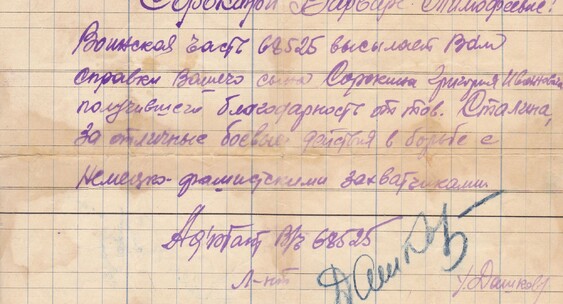 Сорокиной Варваре Тимофеевне!
Воинская часть 68525 высылает Вам
справки Вашего сына Сорокина Григория Ивановича
получившего благодарность от тов. Сталина,
за отличные боевые действия в борьбе с
немецко-фашистскими захватчиками
Адъютант В/ч 68525
Л-нт